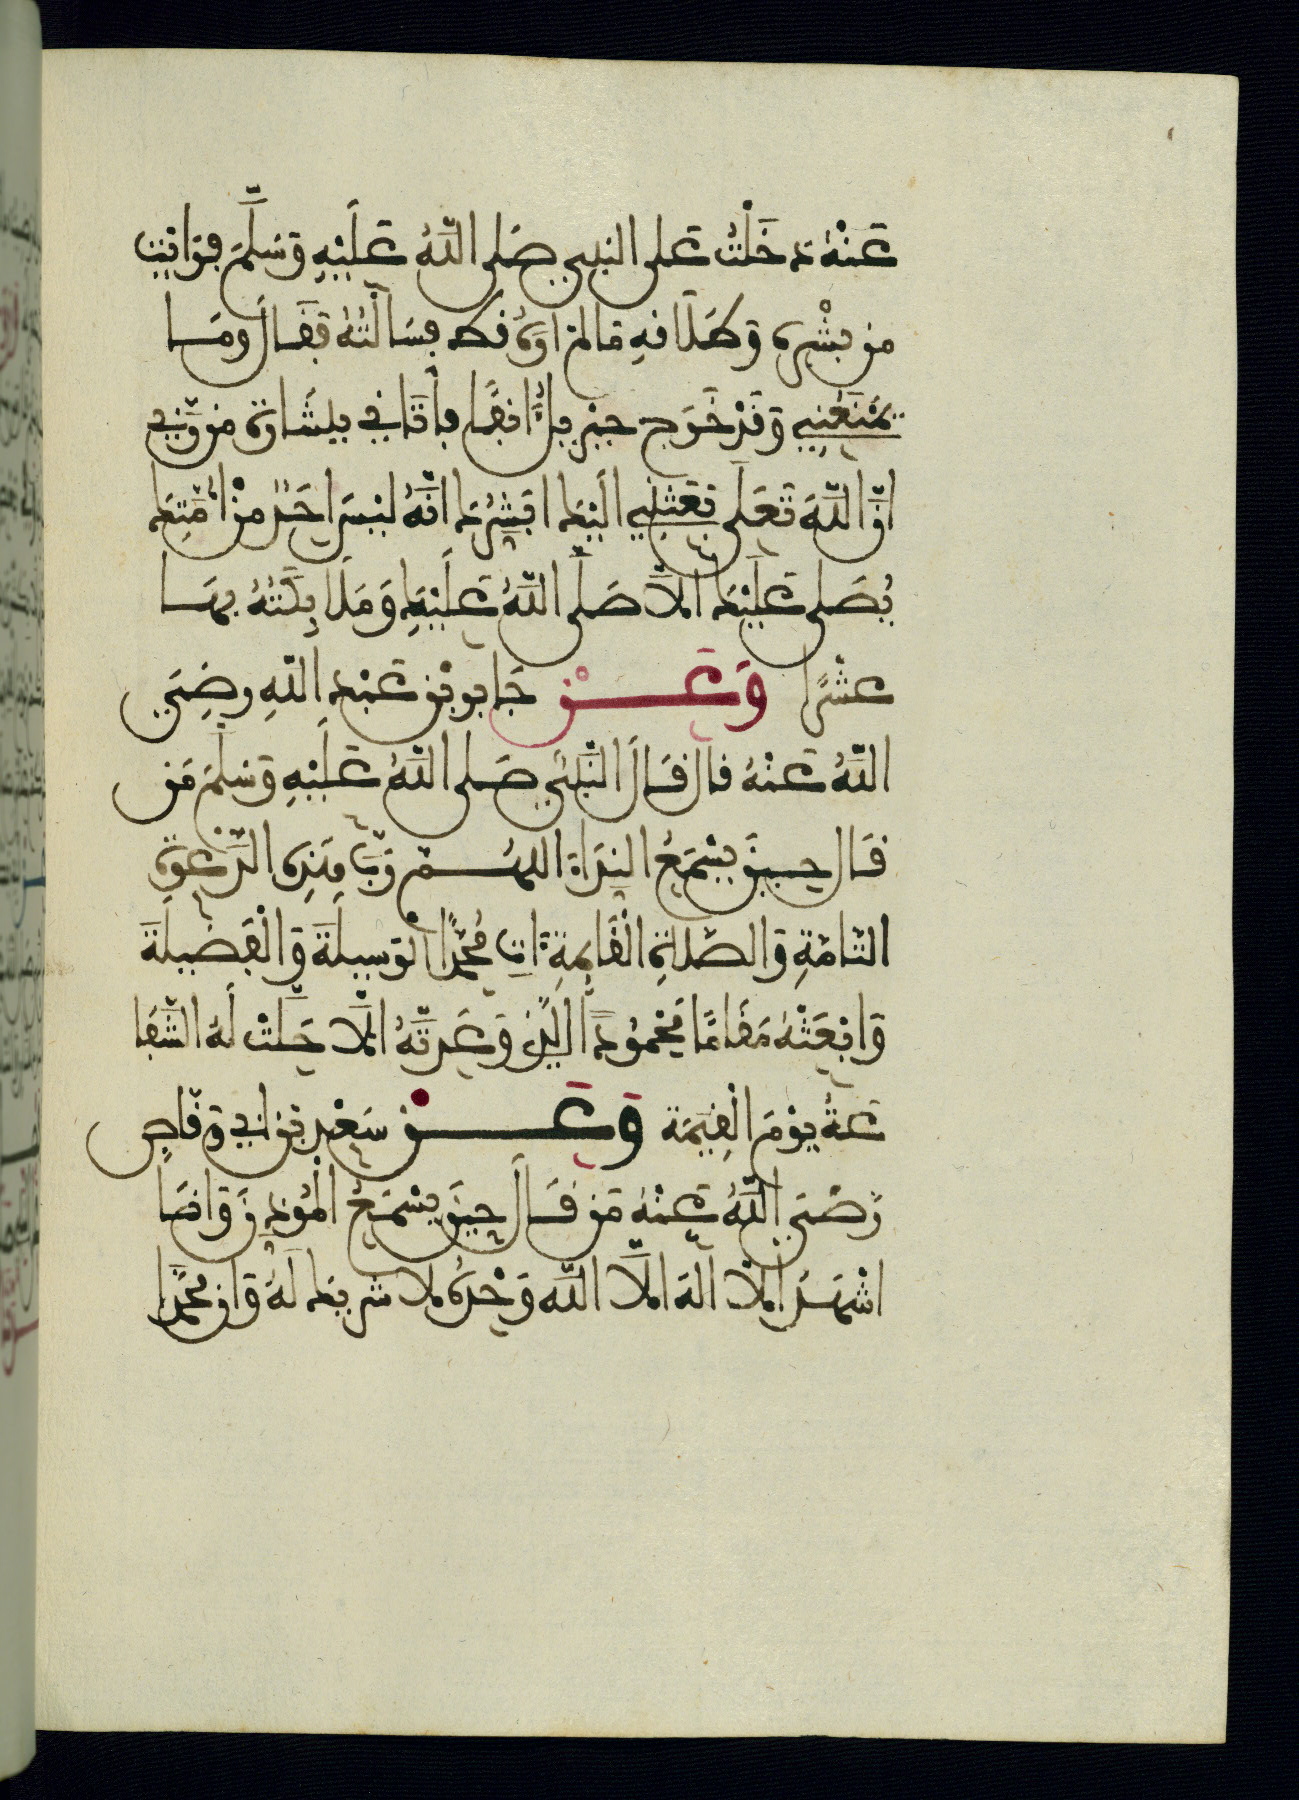 عَنْهُ دخَلْتُ عَلى النبي صَلى اللّهُ عَلَيْهِ وَسَلَّمَ فرَايت
من بشْرِه وطَلافهِ مالم اره فط فسَالْتُهُ فقَالَ ومَا
يَمْنَعُنِي وَقَدْ خَرَج جبْرِيلُ انِفًا فأتاني ببشَارة من رَّبي
انَّ اللّهَ تَعَلى بَعَثنِي اليْك ابَشِرُك انَّهُ ليْسَ احَدٌ مِنْ امَّتِك
يُصَلى عَلَيْك الاَّ صَلَّى اللّهُ عَلَيْهِ وَمَلَايِكَتُهُ بهَا
عشْرًا وَعَنْ جَابر بْن عَبْدِ اللّهِ رضِيَ
اللّهُ عَنْهُ فال فَالَ النَّبيُّ صَلى اللّهُ عَلَيْهِ وَسَلَّمَ مَن
فَال حِينَ يسْمَعُ النِدَاءَ اللهُمَّ رَبَّ هذِه الدَّعْوَةِ
التَّامَّةِ وَالصَّلاةِ الْقَايِمَةِ اتِ مُحَمَّدًا الْوَسِيلَةَ وَالْفَضِيلَةَ
وَابْعَثْهُ مَقَامًا مَّحْمُودًا الَّذِي وَعَدتَّهُ الَّا حَلَّتْ لَهُ الشَّفَا
عَةُ يوْمَ الْقِيَمَة وَعَنْ سَعْدِ بْن ابي وَقَّاصٍ
رَضيَ اللّهُ عَنْهُ مَن فَالَ حِينَ يسْمَعُ الْمُؤذِنَ وَانَا
اشْهَدُ ان لَّا الَهَ الَّا اللَّه وَحْدَهُ لا شرِيك لَهُ وَان مُحَمَّدًا